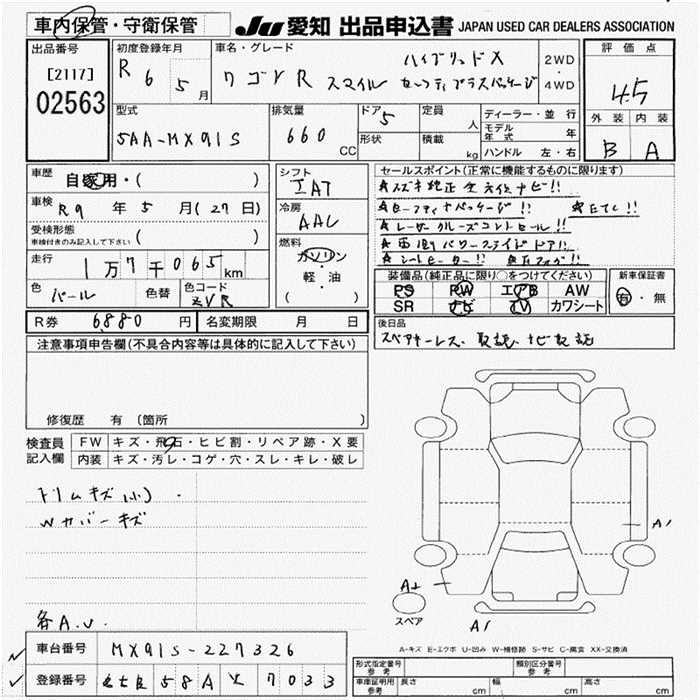 車内保管・守衛保管
JU 愛知 出品申込書 JAPAN USED CAR DEALERS ASSOCIATION
出品番号
[2117]
02563
初度登録年月
R 6 5 月
車名・グレード
ワゴンR スマイル
ハイブリッドX
セーフティプラスパッケージ
2WD
・
4WD
評価点
4.5
外装 内装
B A
型式
5AA-MX91S
排気量
660 CC
ドア 5
形状
定員 人
積載 kg
ディーラー・並行
モデル年式 年
ハンドル 左・右
車歴
自家用・( )
車検 R9 年 5 月(27日)
受検形態
車検付きのみ記入して下さい ( )
走行 1万7千065km
色 パール
色替
色コード ZVR
シフト
IAT
冷房
AAC
燃料
ガソリン
・
軽・油
( )
セールスポイント(正常に機能するものに限ります)
★スズキ純正全方位ナビ!!
★セーフティ+パッケージ!! ★ETC!!
★レーザークルーズコントロール!!
★両側パワースライドドア!!
★シートヒーター!!
装備品(純正品に限り○をつけてください)
PS PW エアB AW
SR ナビ TV カワシート
新車保証書
有・無
R券 6,880 円 名変期限 月 日
後日品
スペアキーレス、取説、ナビ取説
注意事項申告欄(不具合内容等は具体的に記入して下さい)
修復歴 有 〔箇所
検査員記入欄
FW キズ・飛石・ヒビ割・リペア跡・X要
内装 キズ・汚レ・コゲ・穴・スレ・キレ・破レ
ドリムキズ(小)
Wカバーキズ
各A.U.
A1
A2
スペア
A1
A-キズ E-エクボ U-凹み W-補修跡 S-サビ C-腐食 XX-交換済
車台番号 MX91S-227326
登録番号 58A 7033
形式指定番号 参考
類別区分番号 参考
車庫証明用 参考 長さ cm 幅 cm 高さ cm